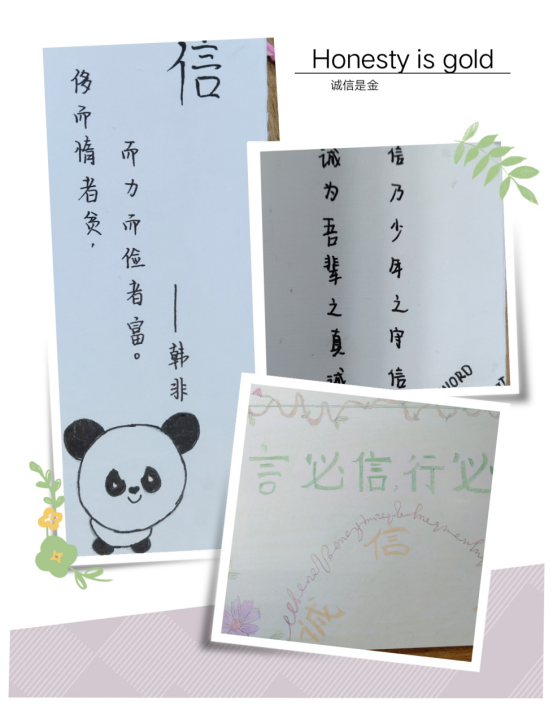 Honesty is gold
诚信是金
信
侈而惰者贫，
而力而俭者富。
——韩非
诚为吾辈之真诚
信乃少年之守信
WORD
言必信，行必
信
诚